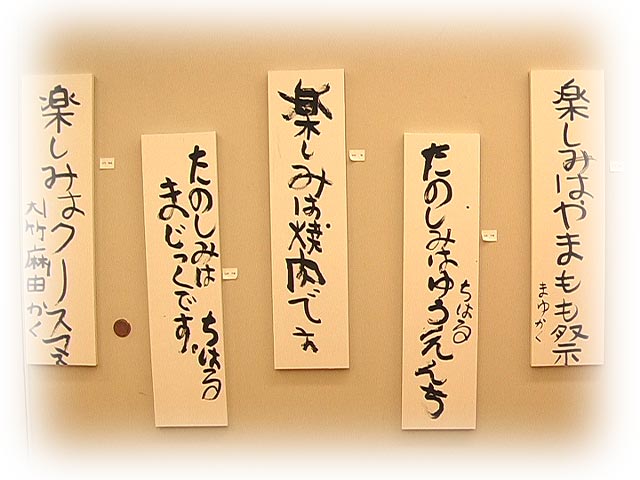 楽しみはやまもも祭
まゆかく
たのしみはゆうえんち
ちはる
楽しみは焼肉です
たのしみは ちはる
まじっくです。
楽しみはクリースマス
大竹麻由かく